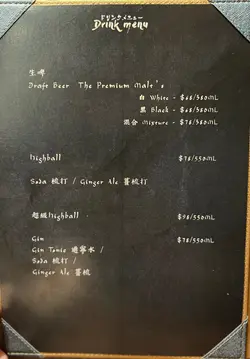 ドリンクメニュー
Drink menu
生啤
Draft Beer The Premium Malt's
白 White - $68/380ML
黑 Black - $68/380ML
混合 Mixture - $78/380ML
Highball $78/350ML
Soda 梳打 / Ginger Ale 薑梳打
超級Highball $98/550ML
Gin $78/350ML
Gin Tonic 通寧水 /
Soda 梳打 /
Ginger Ale 薑梳